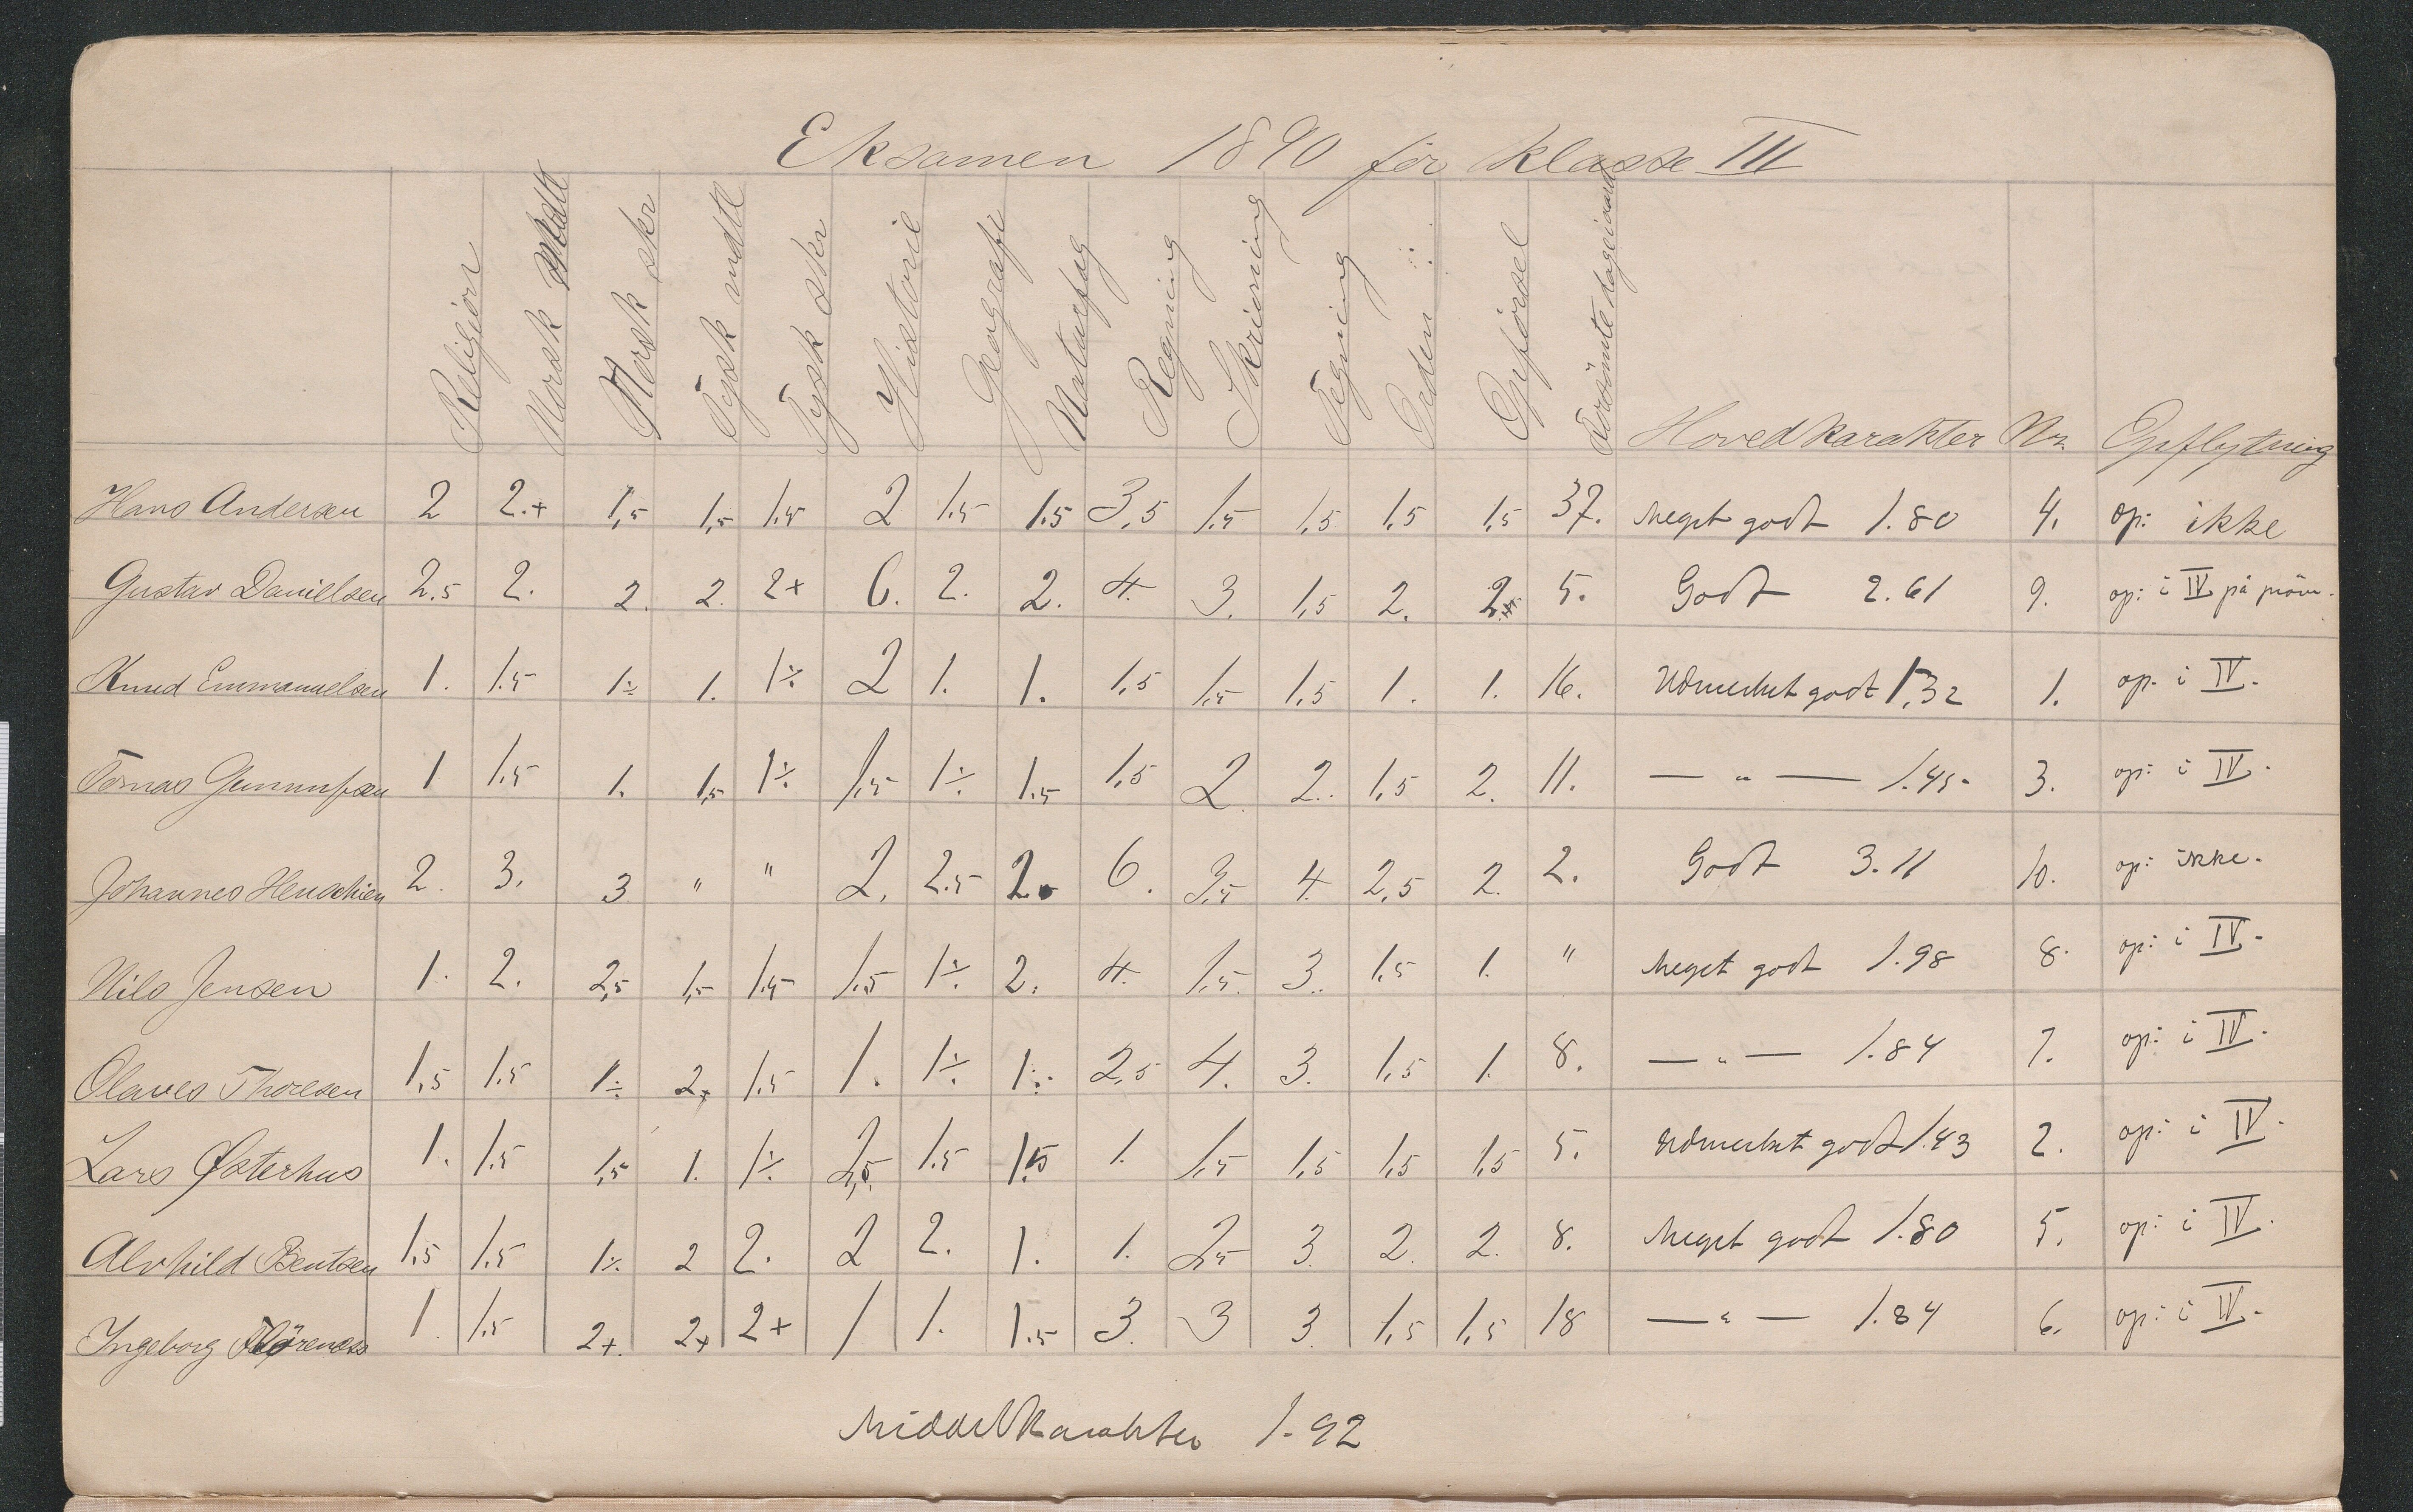 Eksamen 1890 för klasse III
Religion Norsk mdtl Norsk skr Tysk mdtl Tysk skr Historie Geografi Naturfag Regning Skrivning Tegning Orden Opförsel Forsömte dage Hovedkarakter Nr. Opflytning
Hans Andersen 2 2.+ 1,5 1,5 1.5 2 1.5 1.5 3,5 1.5 1,5 1,5 1,5 37. Meget godt 1.80 4. op: ikke
Gustav Danielsen 2.5 2. 2. 2. 2+ 6. 2. 2. 4. 3. 1,5 2. 2. 5. Godt 2.61 9. op: i IV på pröve.
Knud Emmanuelsen 1. 1.5 1÷ 1. 1÷ 2 1. 1. 1,5 1.5 1,5 1. 1. 16. Udmerket godt 1.32 1. op. i IV.
Tomas 1 1.5 1. 1,5 1÷ 1.5 1÷ 1.5 1,5 2 2. 1,5 2. 11. — " — 1.45. 3. op: i IV.
Johannes 2. 3. 3 " " 2. 2.5 2. 6. 3.5 4. 2,5 2. 2. Godt 3.11 10. op: ikke.
Nils Jensen 1. 2. 2,5 1,5 1.5 1.5 1÷ 2. 4. 1.5. 3. 1.5 1. " Meget godt 1.98 8. op: i IV.
Olaves Thoresen 1,5 1.5 1÷ 2+ 1.5 1. 1÷ 1÷ 2,5 4. 3. 1,5 1. 8. — " — 1.84 7. op: i IV.
Lars Østerhus 1. 1.5 1,5 1. 1÷ 2,5. 1.5 1.5 1. 1.5 1,5 1,5 1,5 5. Udmerket godt 1.43 2. op: i IV.
Alvhild Bentsen 1,5 1.5 1÷ 2 2. 2 2. 1. 1. 2,5 3. 2. 2. 8. Meget godt 1.80 5. op: i IV.
Ingeborg 1. 1.5 2+. 2+ 2+ 1 1. 1.5 3. 3 3 1,5 1,5 18 — " — 1.84 6. op: i IV.
Middelkarakter 1.92